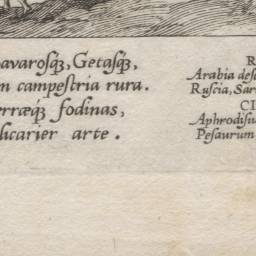 avarosq́ꝫ, Getasq́ꝫ,
n campestria rura.
erræq́ꝫ fodinas,
licarier arte.
R
Arabia des
Ruscia, Sar
CI
Aphrodisiu
Pesaurum